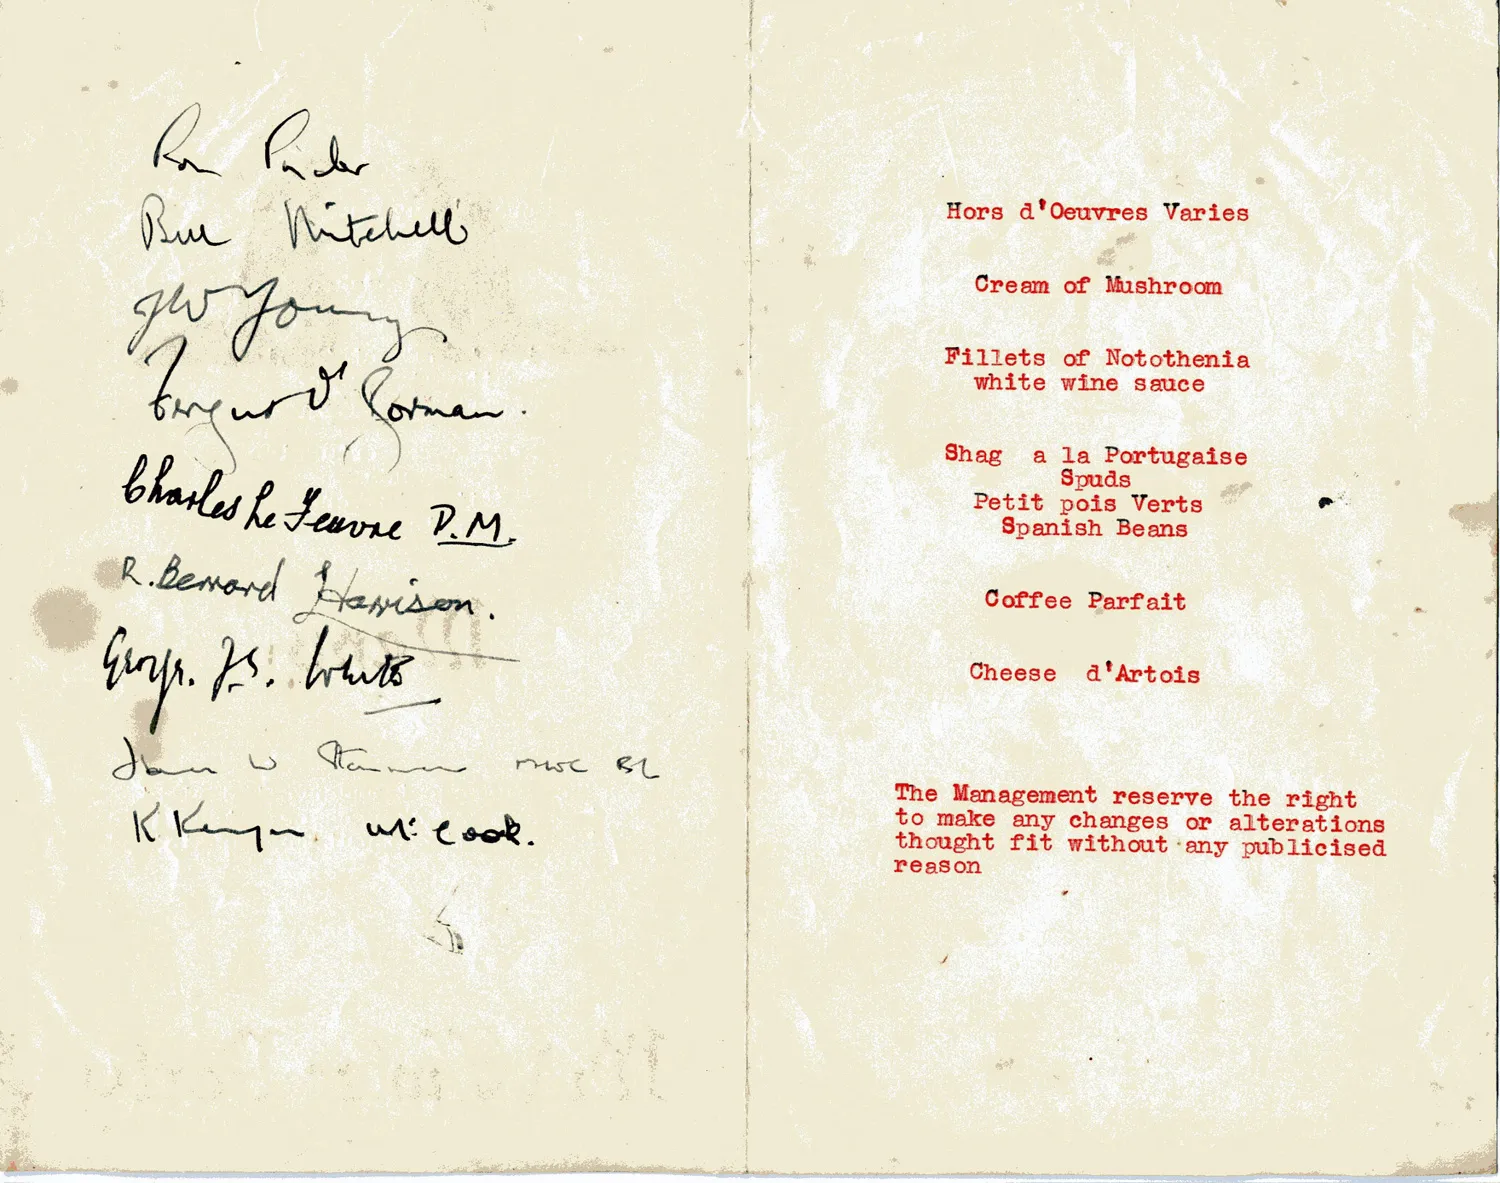 Ron Pinder
Bill Mitchell
JW Young
Fergus O' Gorman.
Charles Le Feuvre D.M.
R. Bernard Harrison.
George. J.S. White
W
K Kenyon Mc Cook.
Hors d'Oeuvres Varies
Cream of Mushroom
Fillets of Notothenia
white wine sauce
Shag a la Portugaise
Spuds
Petit pois Verts
Spanish Beans
Coffee Parfait
Cheese d'Artois
The Management reserve the right
to make any changes or alterations
thought fit without any publicised
reason